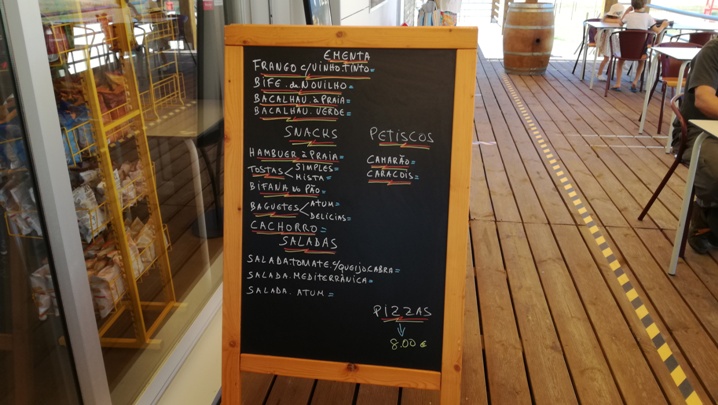 EMENTA
FRANGO C/VINHO.TINTO=
BIFE.da NOVILHO=
BACALHAU.à PRAIA=
BACALHAU.VERDE=
SNACKS
HAMBUER à PRAIA=
TOSTAS SIMPLES=
MISTA=
BIFANA No PÃO=
BAGUETES ATUM=
DELÍCIAS=
CACHORRO=
PETISCOS
CAMARÃO=
CARACOIS=
SALADAS
SALADA.TOMATE.C/QUEIJO.CABRA=
SALADA.MEDITERRÂNICA=
SALADA.ATUM=
PIZZAS
8.00 €